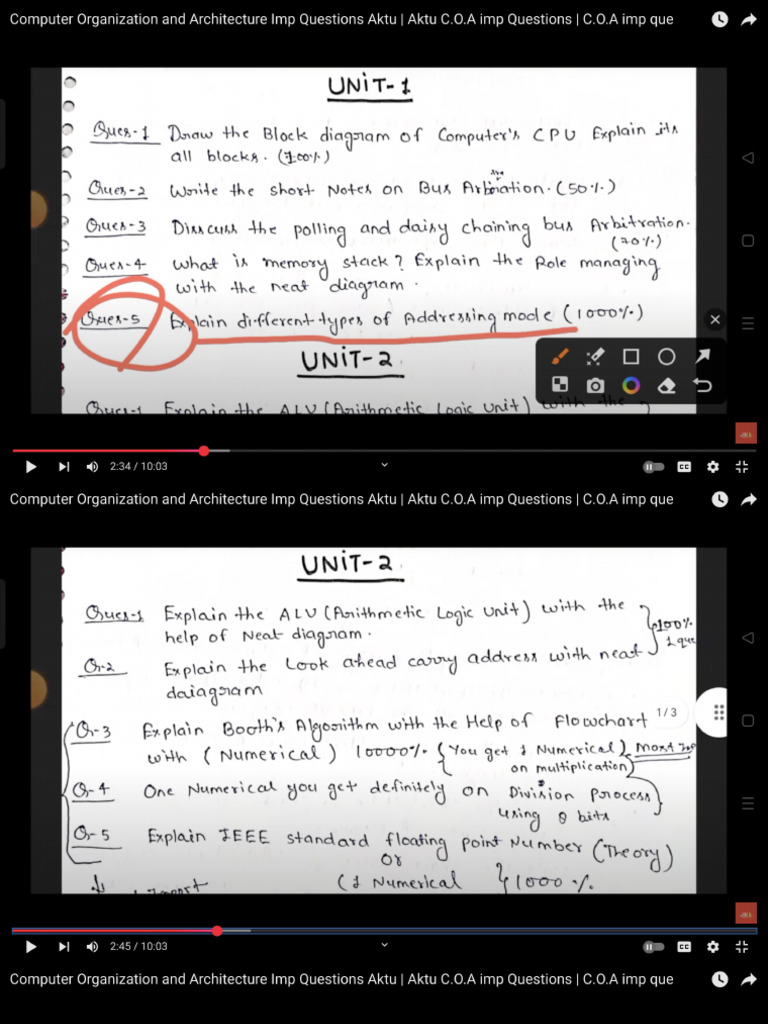 Computer Organization and Architecture Imp Questions Aktu | Aktu C.O.A imp Questions | C.O.A imp que
UNIT-1
Ques-1 Draw the Block diagram of Computer's CPU Explain its
all blocks. (100%)
Ques-2 Write the short Notes on Bus Arbitration. (50%)
Ques-3 Disscuss the polling and daisy chaining bus Arbitration.
(70%)
Ques-4 What is memory stack? Explain the Role managing
with the neat diagram.
Ques-5 Explain different types of Addressing mode (1000%)
UNIT-2
Ques-1 Explain the ALU (Arithmetic Logic unit) with the
2:34 / 10:03
CC
Computer Organization and Architecture Imp Questions Aktu | Aktu C.O.A imp Questions | C.O.A imp que
UNIT-2
Ques-1 Explain the ALU (Arithmetic Logic unit) with the
help of Neat diagram.
100%
1 que
Q-2 Explain the Look ahead carry address with neat
daiagram
1/3
Q-3 Explain Booth's Algorithm with the Help of Flowchart
with (Numerical) 10000% {You get 1 Numerical} Most
on multiplication}
Q-4 One Numerical you get definitely on Division Process
using 8 bits
Q-5 Explain IEEE standard floating point Number (Theory)
OR
(1 Numerical } 1000%
2:45 / 10:03
CC
Computer Organization and Architecture Imp Questions Aktu | Aktu C.O.A imp Questions | C.O.A imp que